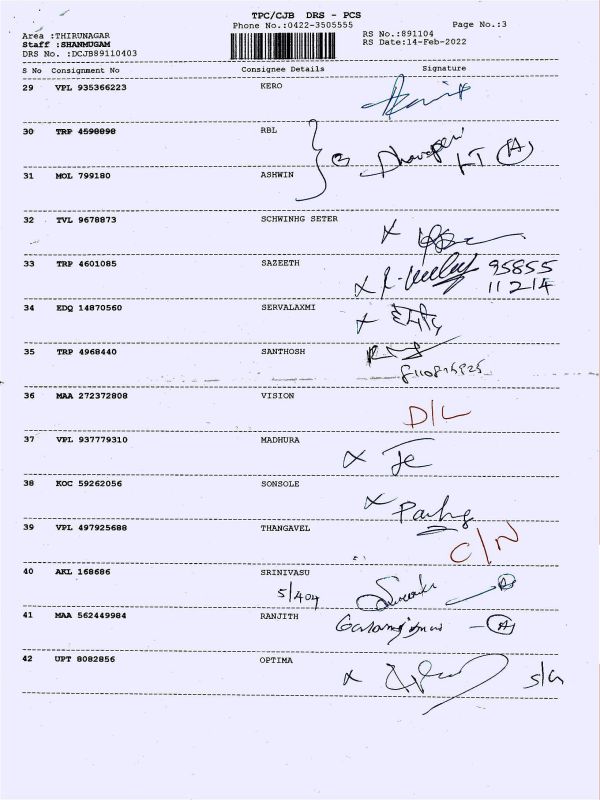 TPC/CJB DRS - PCS
Phone No.:0422-3505555 Page No.:3
Area :THIRUNAGAR RS No.:891104
Staff :SHANMUGAM RS Date:14-Feb-2022
DRS No. :DCJB89110403
S No Consignment No Consignee Details Signature
29 VPL 935366223 KERO
30 TRP 4598898 RBL
31 MOL 799180 ASHWIN
32 TVL 9678873 SCHWINHG SETER
33 TRP 4601085 SAZEETH 95855
11214
34 EDQ 14870560 SERVALAXMI
35 TRP 4968440 SANTHOSH
36 MAA 272372808 VISION
D/L
37 VPL 937779310 MADHURA
38 KOC 59262056 SONSOLE
39 VPL 497925688 THANGAVEL
C/N
40 AKL 168686 SRINIVASU
5/404
41 MAA 562449984 RANJITH
42 UPT 8082856 OPTIMA